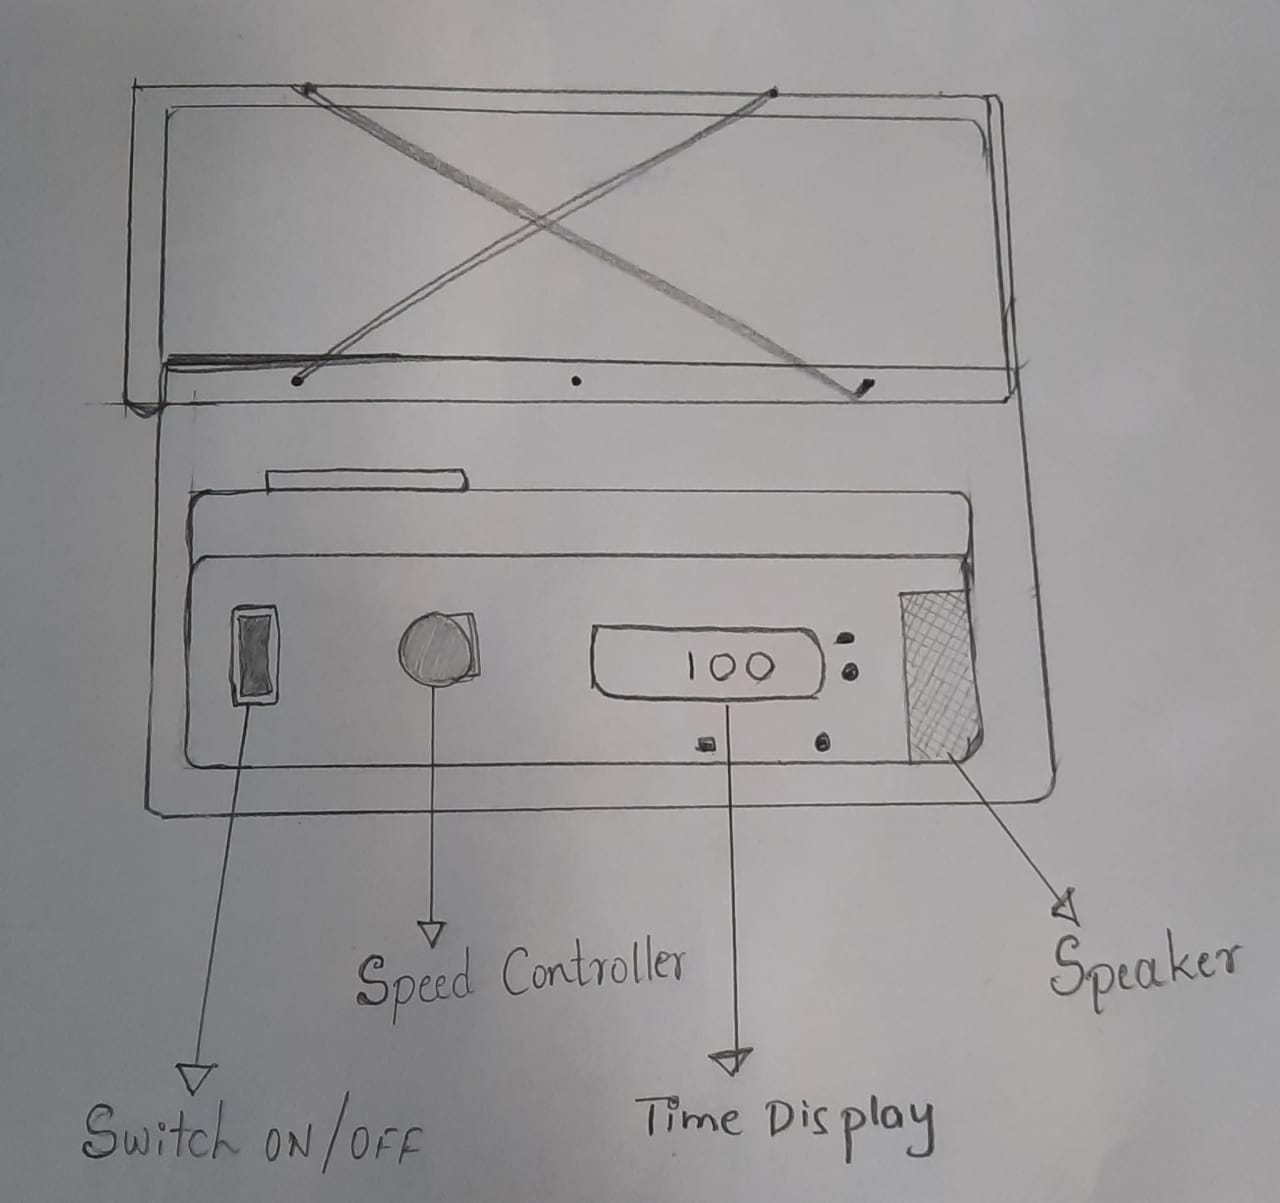 100
Speed Controller
Speaker
Switch ON/OFF
Time Display